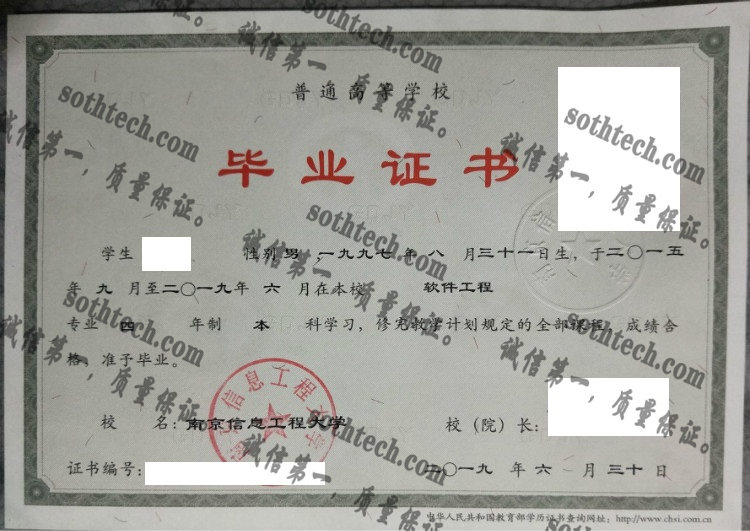 普通高等学校
毕业证书
学生 性别 男，一九九七年 八 月三十一日生，于二〇一五
年 九 月至二〇一九年 六 月在本校 软件工程
专业 四 年制 本 科学习，修完教学计划规定的全部课程，成绩合
格，准予毕业。
校 名：南京信息工程大学
校（院）长：
证书编号：
二〇一九 年 六 月 三十 日
中华人民共和国教育部学历证书查询网址：http://www.chsi.com.cn
信息工程大学
sothtech.com
诚信第一，质量保证。
sothtech.com
诚信第一，质量保证。
sothtech.com
诚信第一，质量保证。
sothtech.com
诚信第一，质量保证。
sothtech.com
诚信第一，质量保证。
sothtech.com
诚信第一，质量保证。
sothtech.com
诚信第一，质量保证。